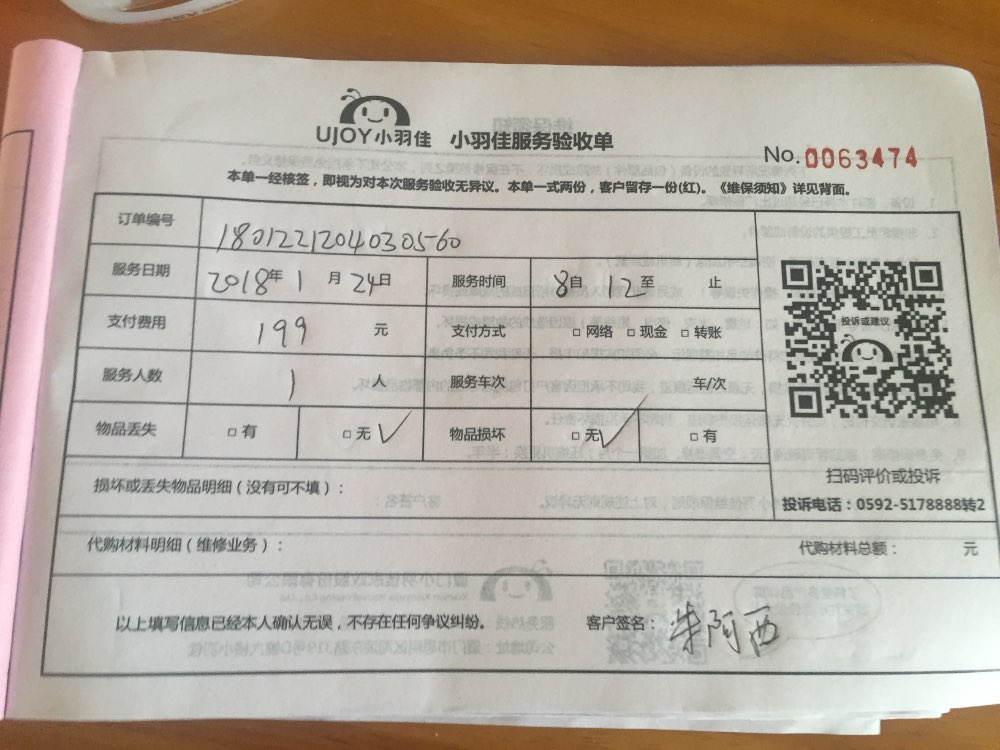 UJOY小羽佳 小羽佳服务验收单
No.0063474
本单一经核签，即视为对本次服务验收无异议。本单一式两份，客户留存一份(红)。《维保须知》详见背面。
订单编号 180122120403055-60
服务日期 2018年 1 月 24日 服务时间 8自 12至 止
支付费用 199 元 支付方式 □ 网络 □ 现金 □ 转账
投诉或建议
服务人数 1 人 服务车次 车/次
物品丢失 □ 有 □ 无 ✓ 物品损坏 □ 无 ✓ □ 有
扫码评价或投诉
损坏或丢失物品明细（没有可不填）：
投诉电话：0592-5178888转2
代购材料明细（维修业务）： 代购材料总额： 元
以上填写信息已经本人确认无误，不存在任何争议纠纷。 客户签名： 阿西